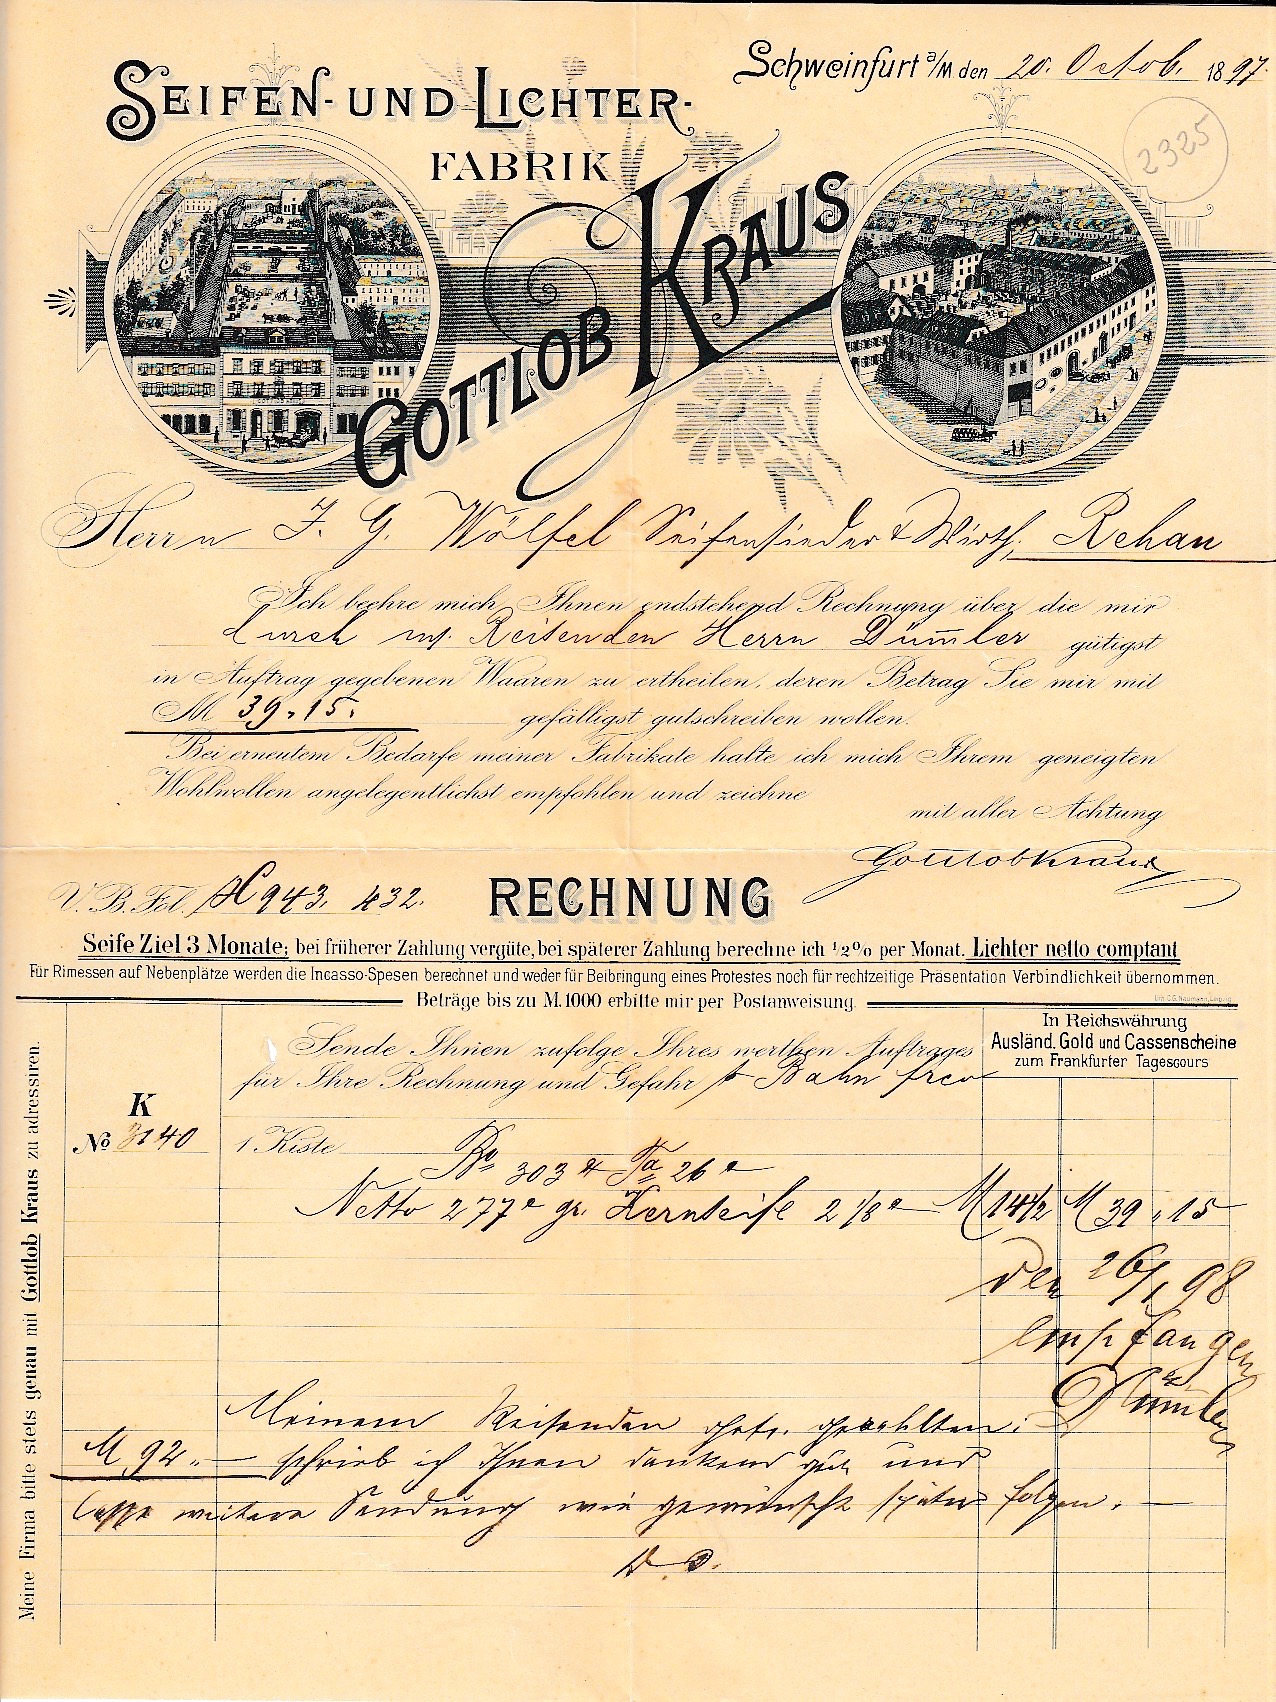 Schweinfurt a/M den 20. Octob. 1897.
2325
SEIFEN- UND LICHTER-
FABRIK
GOTTLOB KRAUS
Herrn J. G. Wölfel Seifensieder & Wirth, Rehau
Ich beehre mich, Ihnen endstehend Rechnung über die mir
durch m. Reisenden Herrn Dümler gütigst
in Auftrag gegebenen Waaren zu ertheilen, deren Betrag Sie mir mit
M 39.15. gefälligst gutschreiben wollen.
Bei erneutem Bedarfe meiner Fabrikate halte ich mich Ihrem geneigten
Wohlwollen angelegentlichst empfohlen und zeichne
mit aller Achtung
Gottlob Kraus
V. B. Fol. H 943. 432.
RECHNUNG
Seife Ziel 3 Monate; bei früherer Zahlung vergüte, bei späterer Zahlung berechne ich 1/2% per Monat. Lichter netto comptant
Für Rimessen auf Nebenplätze werden die Incasso-Spesen berechnet und weder für Beibringung eines Protestes noch für rechtzeitige Präsentation Verbindlichkeit übernommen.
Beträge bis zu M. 1000 erbitte mir per Postanweisung.
Lith. C.G. Naumann, Leipzig
In Reichswährung
Ausländ. Gold und Cassenscheine
zum Frankfurter Tagescours
Sende Ihnen zufolge Ihres werthen Auftrages
für Ihre Rechnung und Gefahr p Bahn frco
K
No 3140
1 Kiste
Bo 303 Ta 26
Netto 277 gr. Kernseife 2 1/8 M 14 1/2 M 39.15
den 26/1 98
empfangen
Dümler
Meinem Reisenden bezahlten
M 92.— schrieb ich Ihnen dankend gut und
lasse weitere Sendung wie gewünscht später folgen. —
D. O.
Meine Firma bitte stets genau mit Gottlob Kraus zu adressiren.